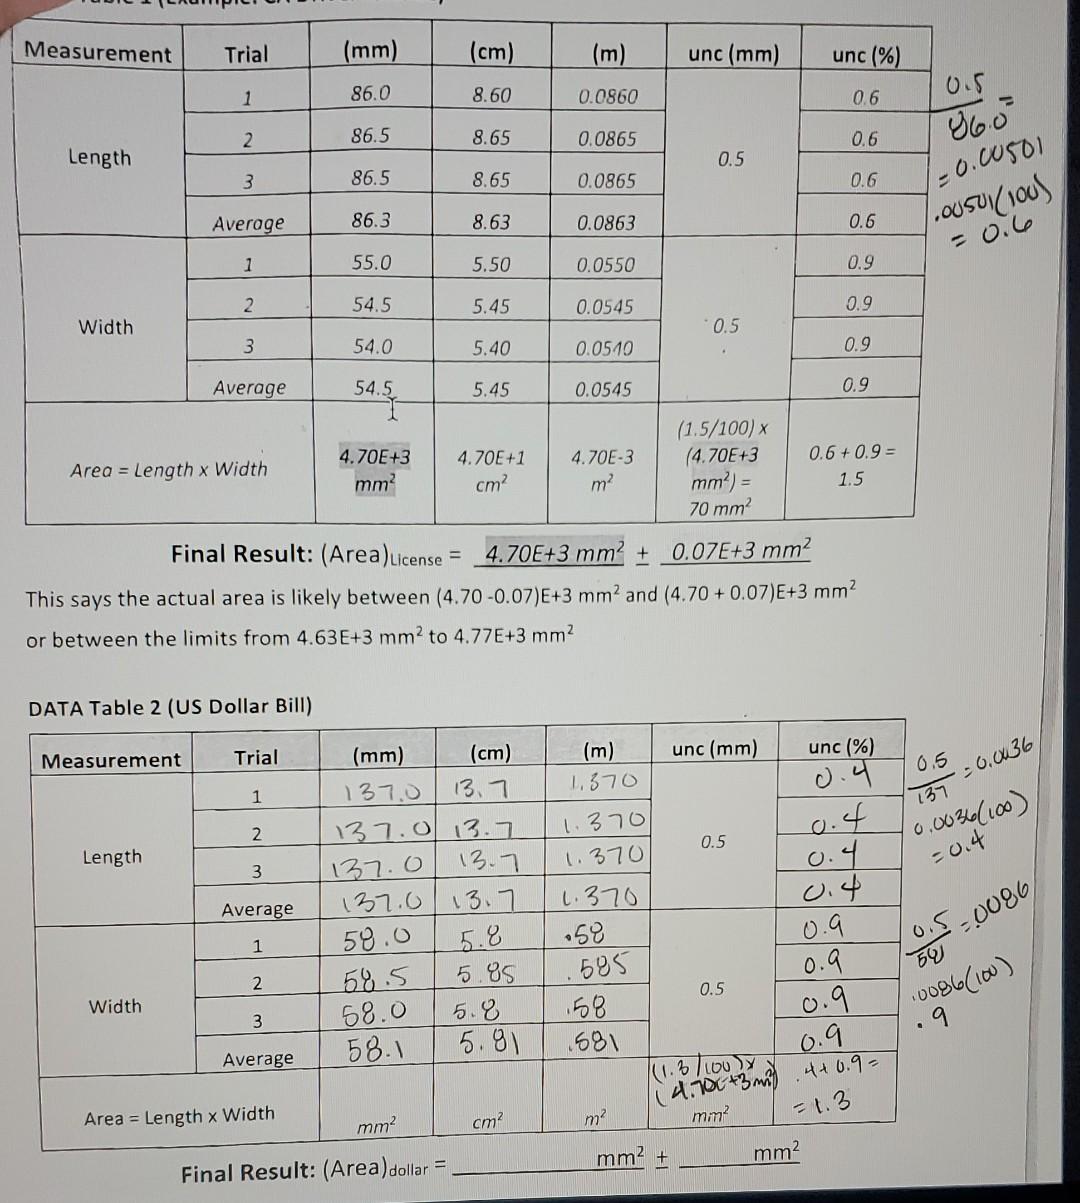 Measurement Trial (mm) (cm) (m) unc (mm) unc (%)
Length
1 86.0 8.60 0.0860 0.6
2 86.5 8.65 0.0865 0.6
0.5
3 86.5 8.65 0.0865 0.6
Average 86.3 8.63 0.0863 0.6
Width
1 55.0 5.50 0.0550 0.9
2 54.5 5.45 0.0545 0.9
0.5
3 54.0 5.40 0.0540 0.9
Average 54.5 5.45 0.0545 0.9
Area = Length x Width
4.70E+3
mm²
4.70E+1
cm²
4.70E-3
m²
(1.5/100) x
(4.70E+3
mm²) =
70 mm²
0.6 + 0.9 =
1.5
0.5
86.0 =
= 0.00501
.00501(100)
= 0.6
Final Result: (Area)License = 4.70E+3 mm² ± 0.07E+3 mm²
This says the actual area is likely between (4.70 -0.07)E+3 mm² and (4.70 + 0.07)E+3 mm²
or between the limits from 4.63E+3 mm² to 4.77E+3 mm²
DATA Table 2 (US Dollar Bill)
Measurement Trial (mm) (cm) (m) unc (mm) unc (%)
Length
1 137.0 13.7 1.370 0.4
2 137.0 13.7 1.370 0.4
0.5
3 137.0 13.7 1.370 0.4
Average 137.0 13.7 1.370 0.4
Width
1 58.0 5.8 .58 0.9
2 58.5 5.85 .585 0.9
0.5
3 58.0 5.8 .58 0.9
Average 58.1 5.81 .581 0.9
Area = Length x Width
mm²
cm²
m²
(1.3/100)x
(4.70E+3mm²)
mm²
.4+0.9=
=1.3
0.5
137 = 0.0036
0.0036(100)
= 0.4
0.5
58 = .0086
.0086(100)
.9
Final Result: (Area)dollar = mm² ± mm²